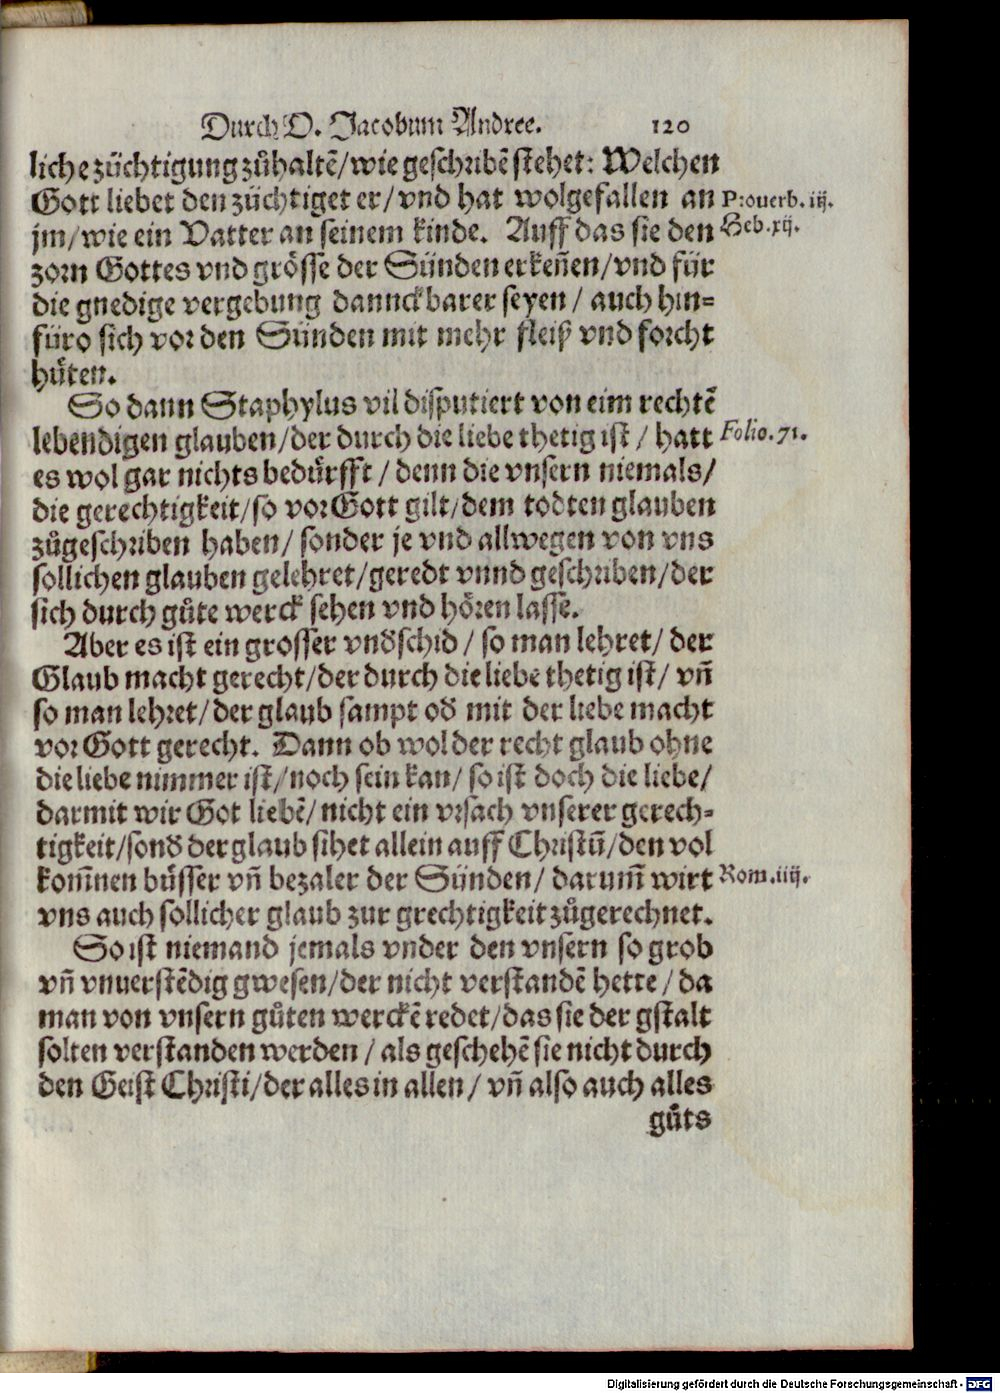 Durch D. Jacobum Andree. 120
liche züchtigung zůhaltẽ/wie geschribẽ stehet: Welchen
Gott liebet den züchtiget er/vnd hat wolgefallen an
Prouerb. iij.
jm/wie ein Vatter an seinem kinde. Auff das sie den
Heb. xij.
zorn Gottes vnd grösse der Sünden erkeñen/vnd für
die gnedige vergebung dannckbarer seyen / auch hin=
füro sich vor den Sünden mit mehr fleiß vnd forcht
hüten.
So dann Staphylus vil disputiert von eim rechtẽ
lebendigen glauben/der durch die liebe thetig ist / hatt
Folio. 71.
es wol gar nichts bedürfft / denn die vnsern niemals/
die gerechtigkeit/so vor Gott gilt/dem todten glauben
zůgeschriben haben/ sonder je vnd allwegen von vns
sollichen glauben gelehret/geredt vnnd geschriben/der
sich durch gůte werck sehen vnd hören lasse.
Aber es ist ein grosser vndschid / so man lehret/ der
Glaub macht gerecht/der durch die liebe thetig ist/ vñ
so man lehret/der glaub sampt od mit der liebe macht
vor Gott gerecht. Dann ob wol der recht glaub ohne
die liebe nimmer ist/noch sein kan/ so ist doch die liebe/
darmit wir Got liebẽ/ nicht ein vrsach vnserer gerech=
tigkeit/sond der glaub sihet allein auff Christũ/den vol
kom̃nen büsser vñ bezaler der Sünden/ darum̃ wirt
Rom. iiij.
vns auch sollicher glaub zur grechtigkeit zůgerechnet.
So ist niemand jemals vnder den vnsern so grob
vñ vnuerstẽdig gwesen/der nicht verstandẽ hette / da
man von vnsern gůten werckẽ redet/das sie der gstalt
solten verstanden werden / als geschehẽ sie nicht durch
den Geist Christi/der alles in allen / vñ also auch alles
gůts
Digitalisierung gefördert durch die Deutsche Forschungsgemeinschaft - DFG